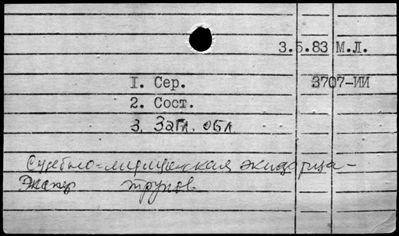 3.5.83 М.Л.
1. Сер. 3707-ИИ
2. Сост.
3. Загл. обл.
Судебно-медицинская экспертиза -
Экспер трупов